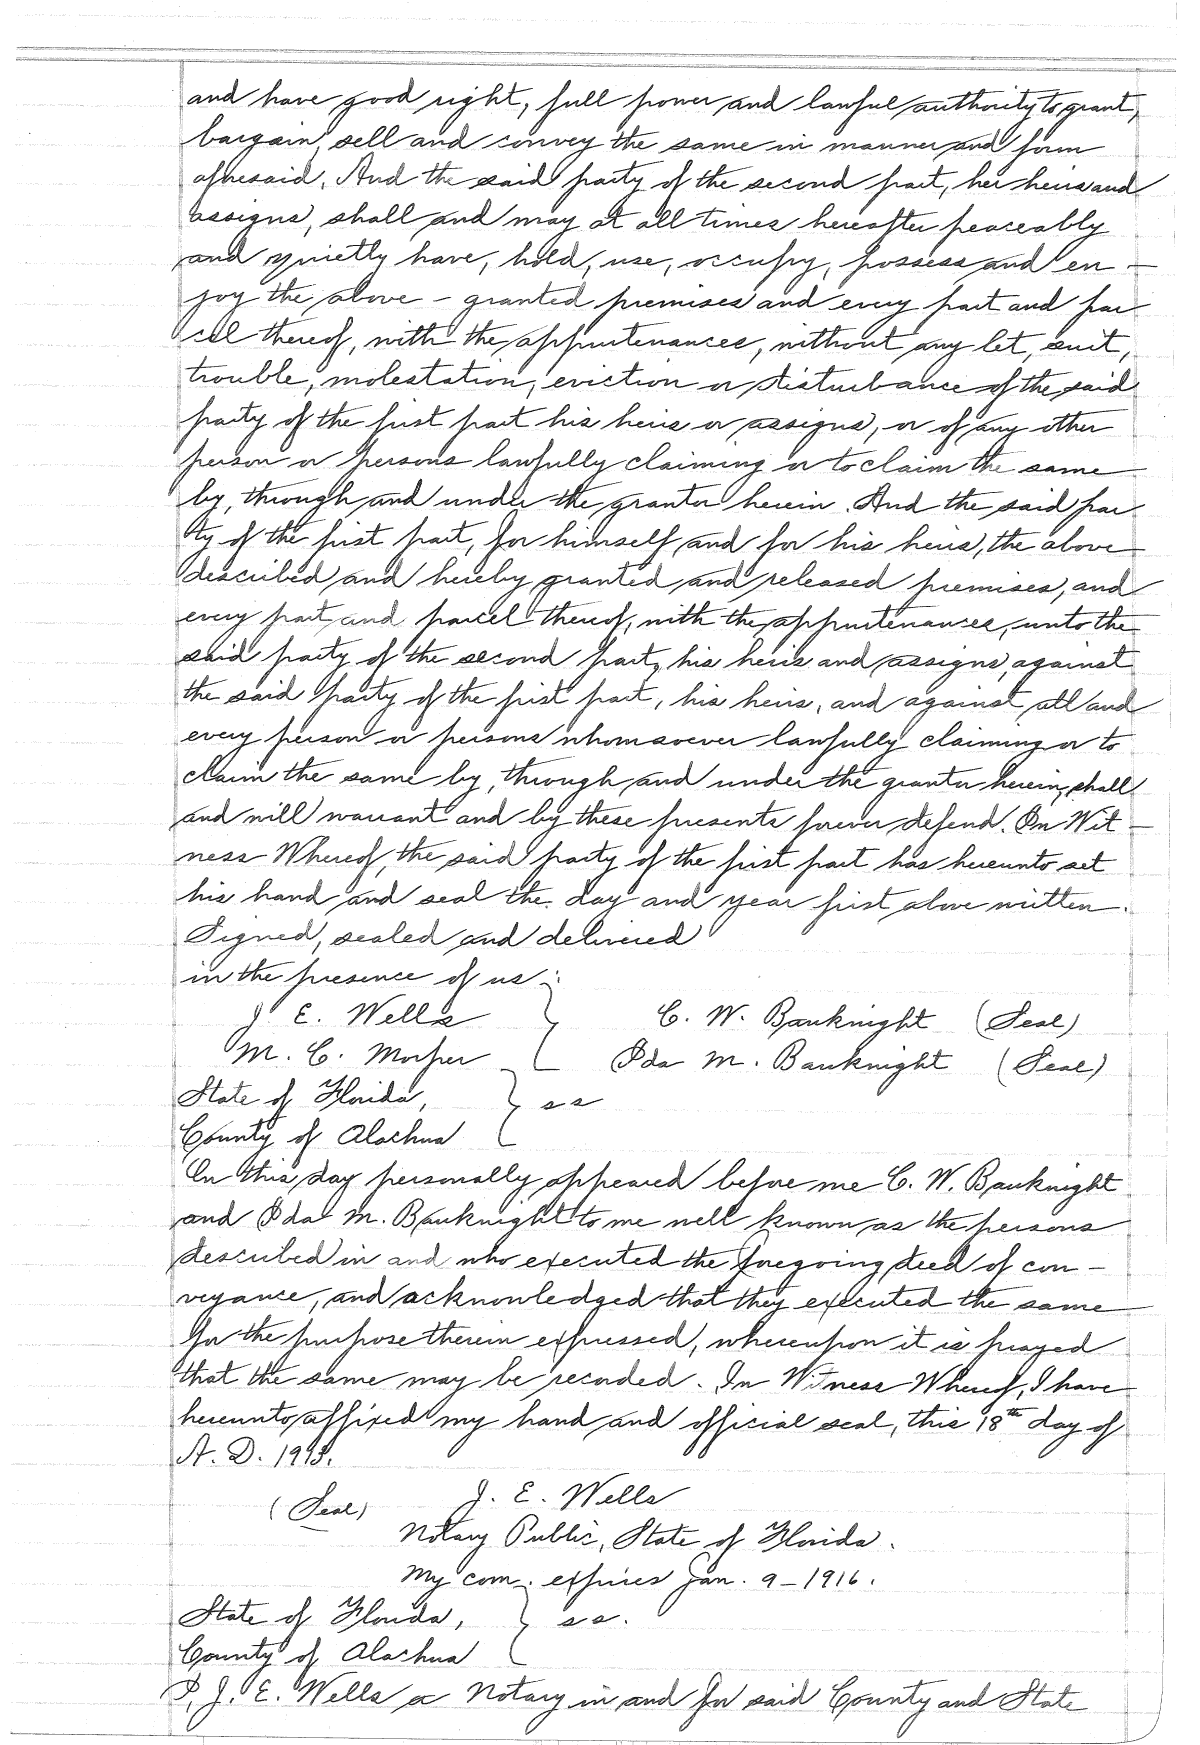 and have good right, full power and lawful authority to grant,
bargain, sell and convey the same in manner and form
aforesaid. And the said party of the second part, her heirs and
assigns, shall and may at all times hereafter peaceably
and quietly have, hold, use, occupy, possess and en-
joy the above-granted premises and every part and par
cel thereof, with the appurtenances, without any let, suit,
trouble, molestation, eviction or disturbance of the said
party of the first part his heirs or assigns, or of any other
person or persons lawfully claiming or to claim the same
by, through and under the grantor herein. And the said par
ty of the first part, for himself and for his heirs, the above
described and hereby granted and released premises, and
every part and parcel thereof, with the appurtenances, unto the
said party of the second part, his heirs and assigns, against
the said party of the first part, his heirs, and against all and
every person or persons whomsoever lawfully claiming or to
claim the same by, through and under the grantor herein, shall
and will warrant and by these presents forever defend. In Wit-
ness Whereof, the said party of the first part has hereunto set
his hand and seal the day and year first above written.
Signed, sealed and delivered
in the presence of us:
J. E. Wells } C. W. Bauknight (Seal)
M. C. Mosher Ida M. Bauknight (Seal)
State of Florida, } ss
County of Alachua
On this day personally appeared before me C. W. Bauknight
and Ida M. Bauknight to me well known as the persons
described in and who executed the foregoing deed of con-
veyance, and acknowledged that they executed the same
for the purpose therein expressed, whereupon it is prayed
that the same may be recorded. In Witness Whereof, I have
hereunto affixed my hand and official seal, this 18th day of
A. D. 1913.
(Seal) J. E. Wells
Notary Public, State of Florida.
My com. expires Jan. 9-1916.
State of Florida, } ss.
County of Alachua
I, J. E. Wells a Notary in and for said County and State